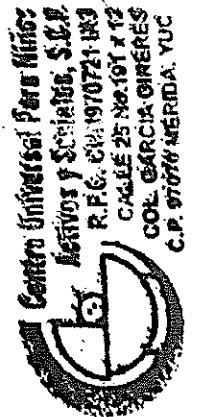 Centro Universal Para Niños
Activos y Sociales, S.C.P.
R.F.C.
CALLE 25 No. 191 x 12
COL. GARCIA GINERES
C.P. 97070 MERIDA, YUC